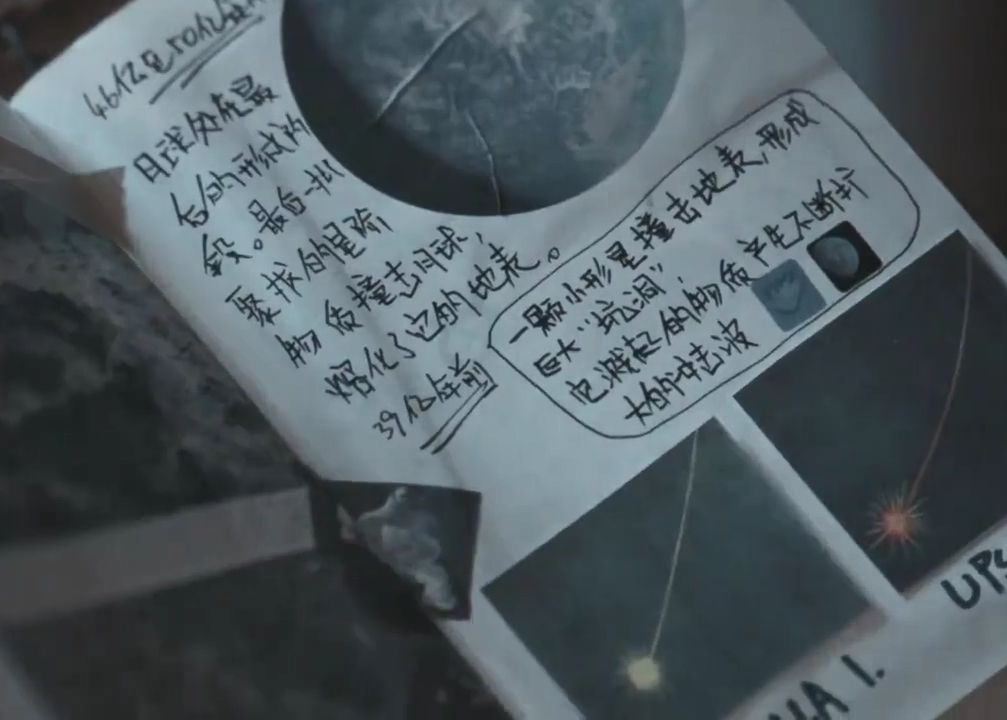 46亿
月球处在最
后的形成阶
段。最后一批
聚拢的星际
物质撞击月球，
熔化了它的地表。
39亿年前
一颗小形星撞击地表，形成
巨大…坑洞，
它溅起的物质产生不断扩
大的冲击波
UPS
A 1.